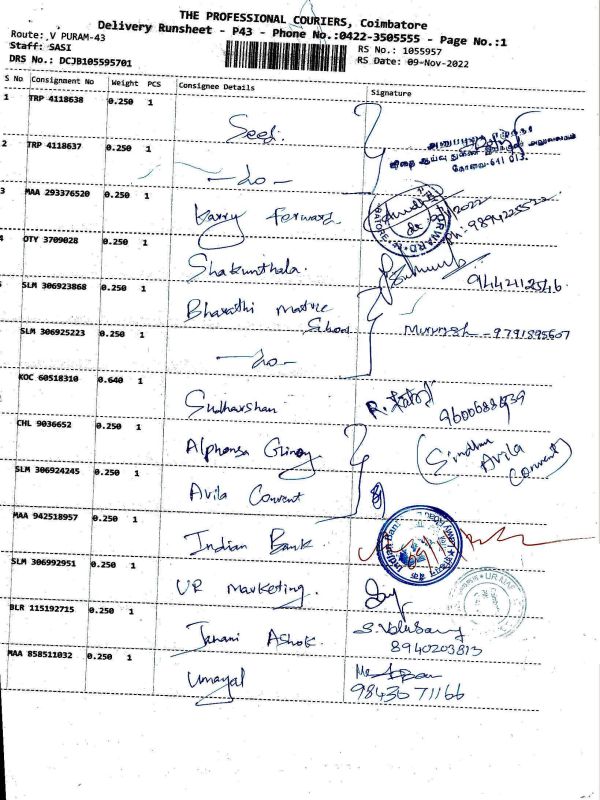 THE PROFESSIONAL COURIERS, Coimbatore
Delivery Runsheet - P43 - Phone No.:0422-3505555 - Page No.:1
Route: V PURAM-43
Staff: SASI
RS No.: 1055957
DRS No.: DCJB105595701
RS Date: 09-Nov-2022
S No Consignment No Weight PCS Consignee Details Signature
1 TRP 4118638 0.250 1
Seed
2 TRP 4118637 0.250 1
-do-
கோவை-641 013.
3 MAA 293376520 0.250 1
Karry Forward
4 OTY 3709028 0.250 1
Shakunthala.
9442112546
SLM 306923868 0.250 1
Bharathi matric School
-9791895607
SLM 306925223 0.250 1
-do-
KOC 60518310 0.640 1
Sudharshan
R.
CHL 9036652 0.250 1
Alphonsa
(Sindhu Avila Convent)
SLM 306924245 0.250 1
Avila Convent
MAA 942518957 0.250 1
Indian Bank
Indian Bank
SLM 306992951 0.250 1
UR marketing.
BLR 115192715 0.250 1
Janani Ashok.
8940203813
MAA 858511032 0.250 1
Umayal
9843671166